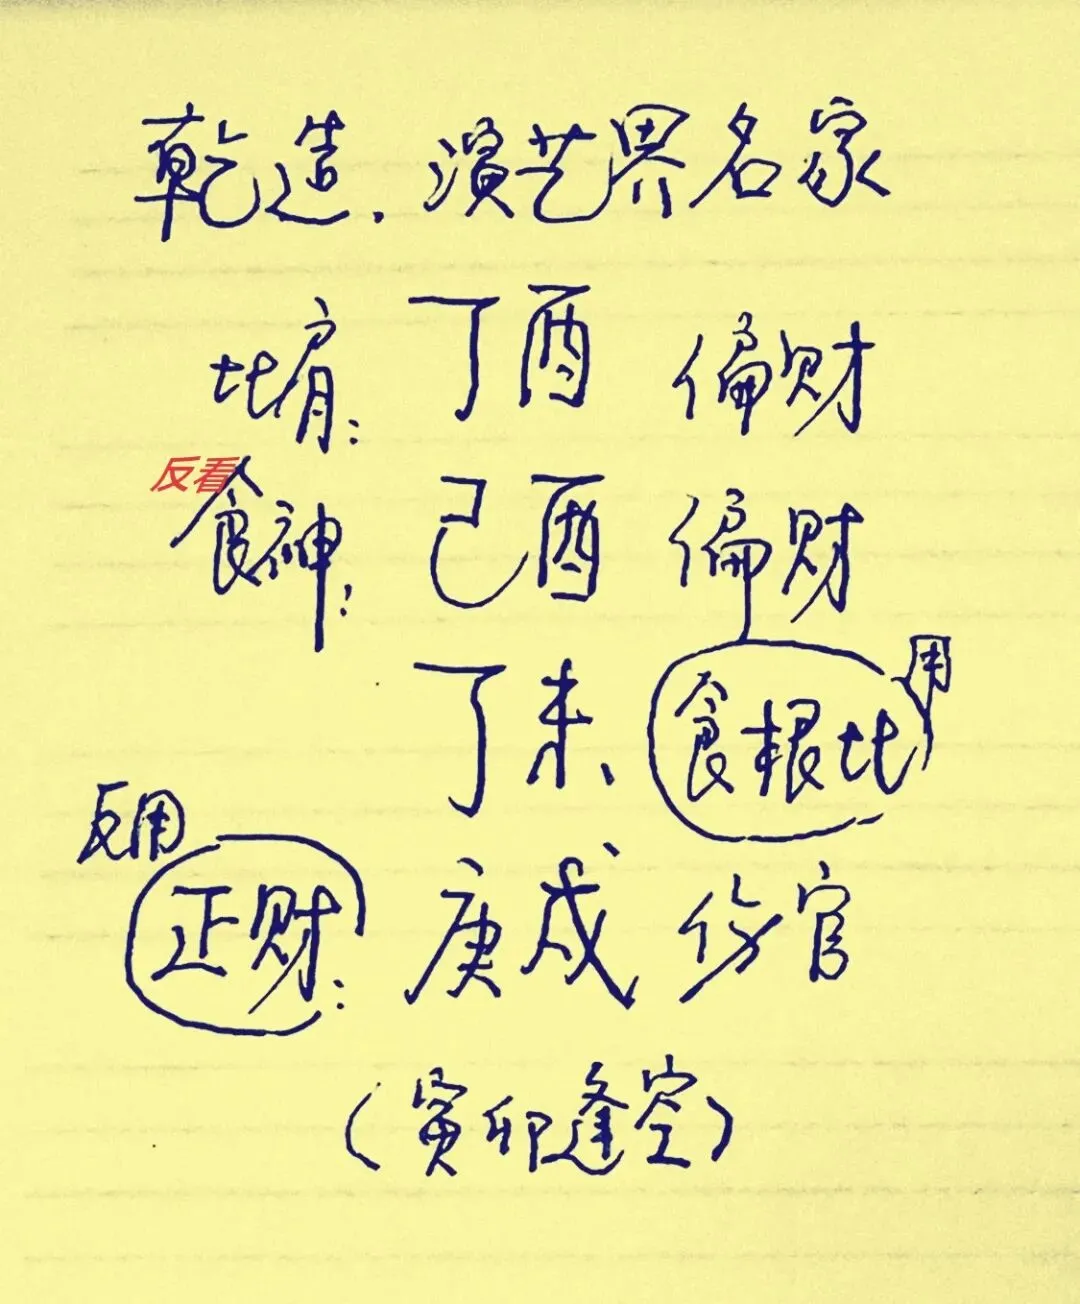 乾造.演艺界名家
比肩:丁酉 偏财
反看
食神:己酉 偏财
丁未 食根比 用
反用
正财:庚戌 伤官
(寅卯逢空)